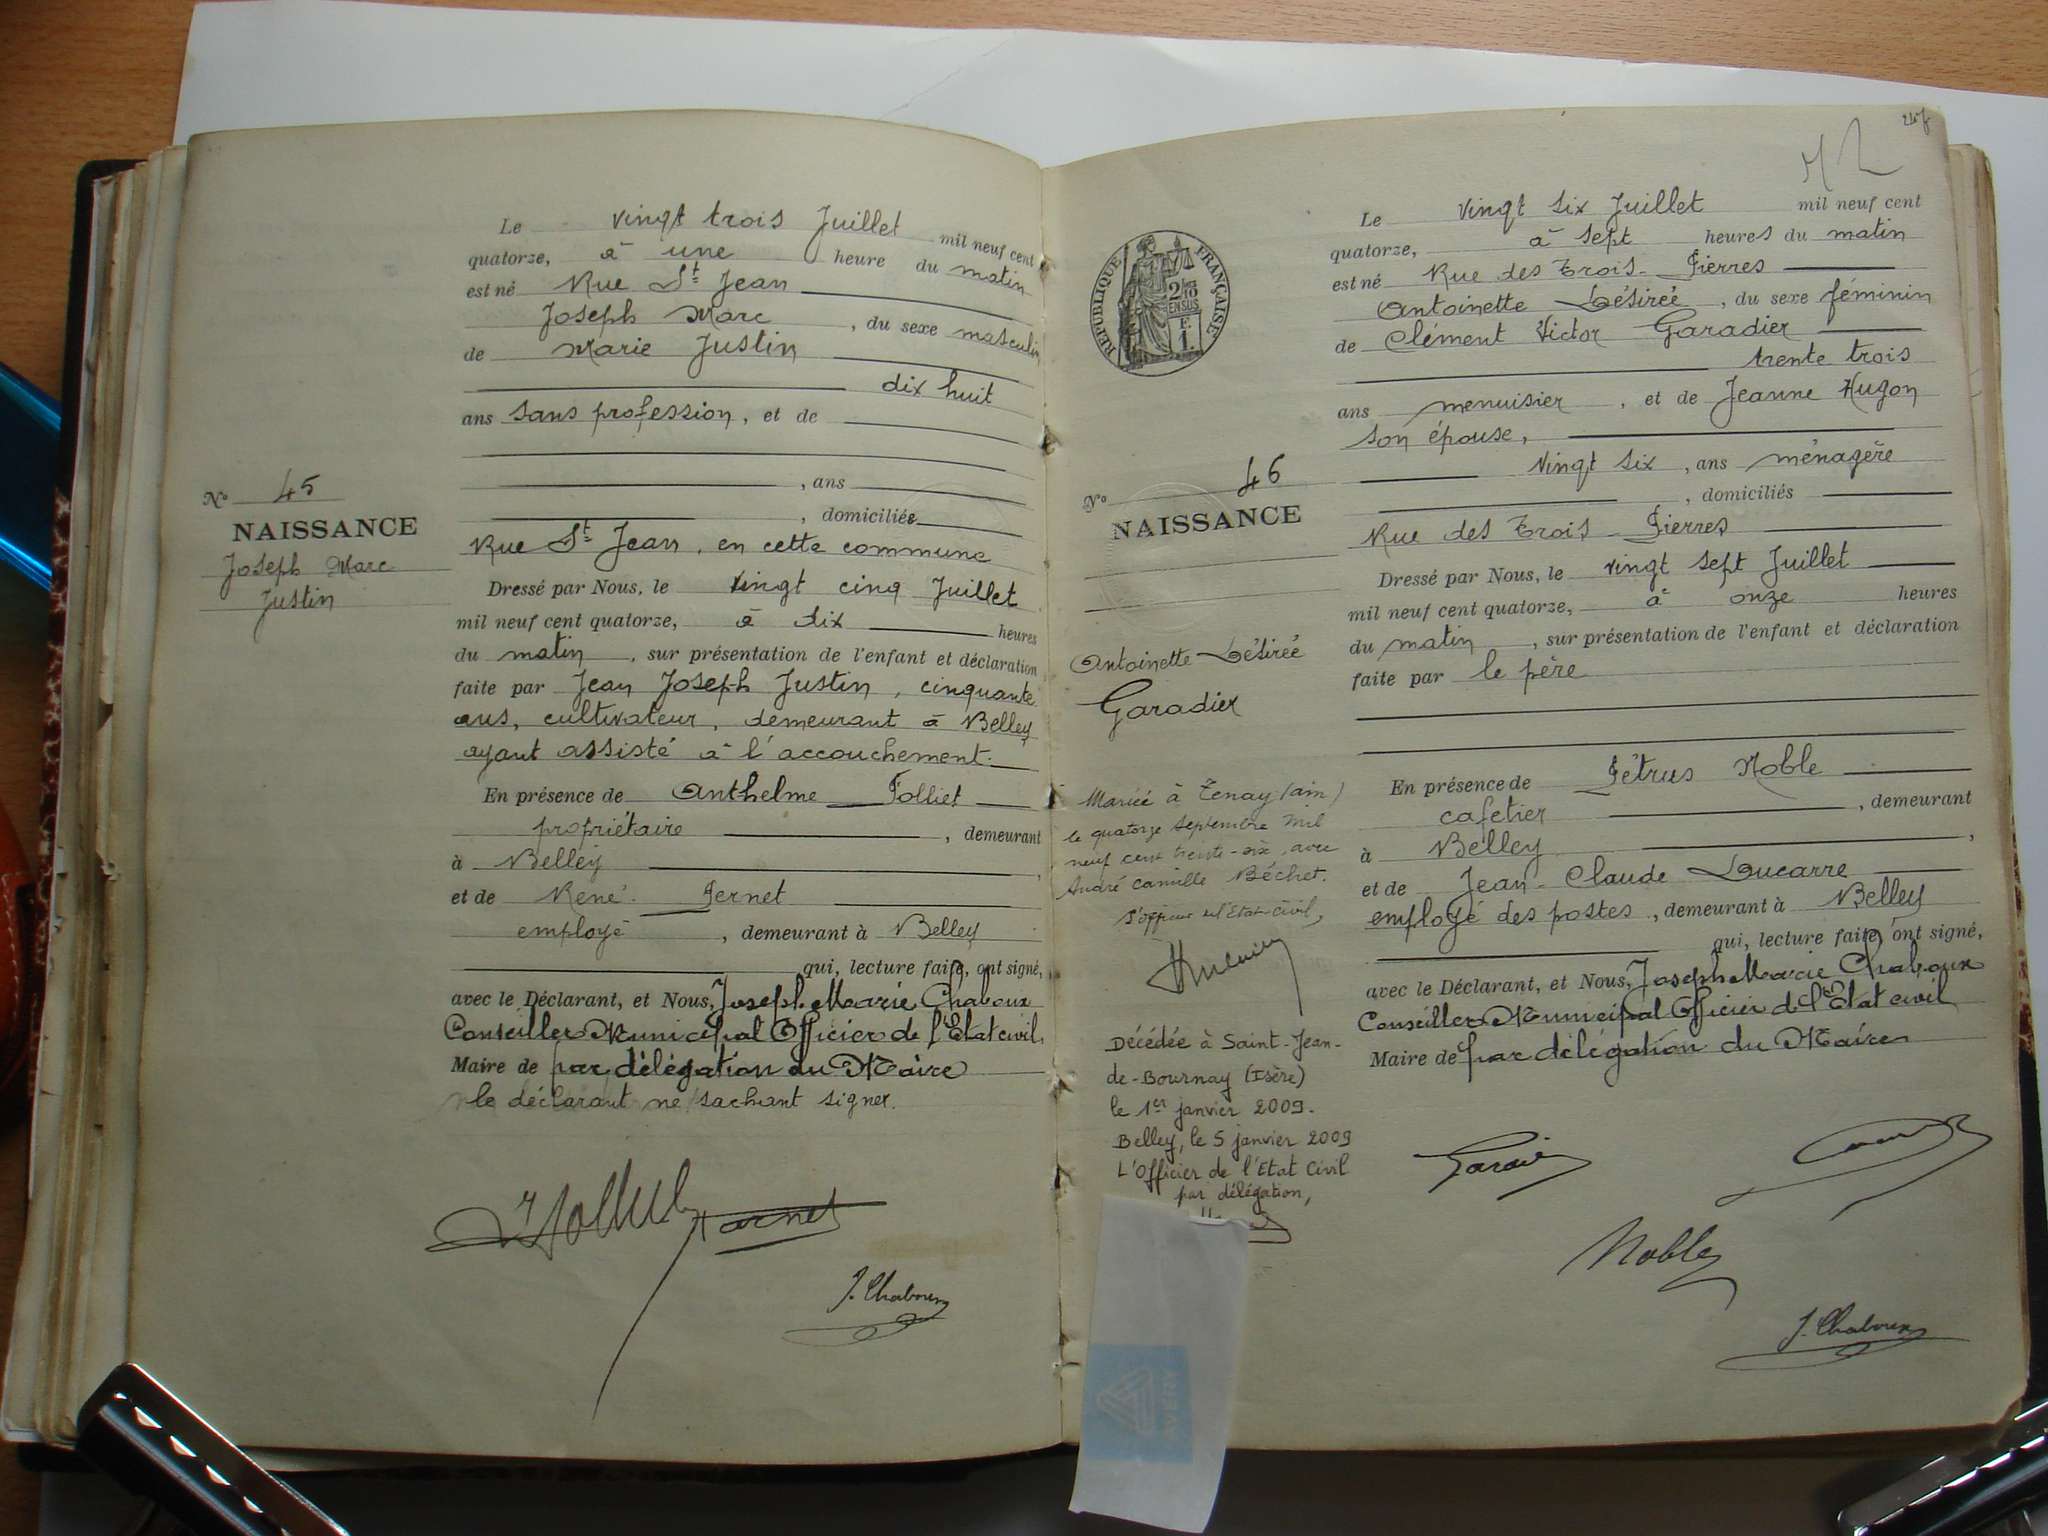 Le vingt trois Juillet mil neuf cent
quatorze, à une heure du matin
est né Rue St Jean
Joseph Marc, du sexe masculin
de Marie Justin
dix huit
ans sans profession, et de
, ans
, domiciliés
Rue St Jean, en cette commune
Dressé par Nous, le vingt cinq Juillet
mil neuf cent quatorze, à dix heures
du matin, sur présentation de l'enfant et déclaration
faite par Jean Joseph Justin, cinquante
ans, cultivateur, demeurant à Belley
ayant assisté à l'accouchement.
En présence de Anthelme Folliet
propriétaire, demeurant
à Belley,
et de René Pernet
employé, demeurant à Belley
qui, lecture faite, ont signé,
avec le Déclarant, et Nous, Joseph Marie Chaboux
Conseiller Municipal Officier de l'Etat civil,
Maire de par délégation du Maire
le déclarant ne sachant signer.
J. Chaboux
No 45
NAISSANCE
Joseph Marc
Justin
RÉPUBLIQUE FRANÇAISE
2/10
EN SUS
F.
1.
No 46
NAISSANCE
Antoinette Désirée
Garadier
Mariée à Tenay (Ain)
le quatorze Septembre mil
neuf cent trente-six, avec
André Camille Béchet.
l'officier de l'Etat-civil,
Décédée à Saint-Jean-
de-Bournay (Isère)
le 1er janvier 2009.
Belley, le 5 janvier 2009
L'Officier de l'Etat Civil
par délégation,
AVERY
Le vingt six Juillet mil neuf cent
quatorze, à sept heures du matin
est né Rue des Trois-Pierres
Antoinette Désirée, du sexe féminin
de Clément Victor Garadier
trente trois
ans menuisier, et de Jeanne Hugon
son épouse,
vingt six, ans ménagère
, domiciliés
Rue des Trois-Pierres
Dressé par Nous, le vingt sept Juillet
mil neuf cent quatorze, à onze heures
du matin, sur présentation de l'enfant et déclaration
faite par le père
En présence de Pétrus Noble
cafetier, demeurant
à Belley,
et de Jean-Claude Ducarre
employé des postes, demeurant à Belley
qui, lecture faite, ont signé,
avec le Déclarant, et Nous, Joseph Marie Chaboux
Conseiller Municipal Officier de l'Etat civil
Maire de par délégation du Maire
Noble
J. Chaboux